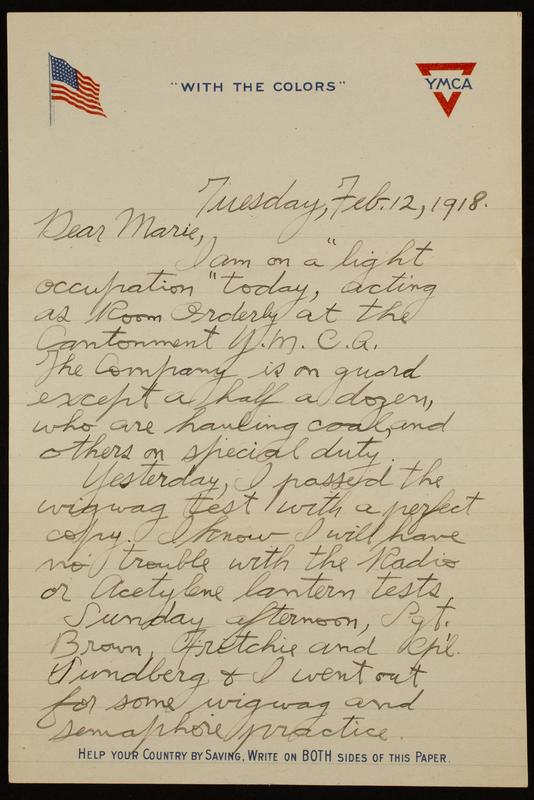 "WITH THE COLORS"
YMCA
Tuesday, Feb. 12, 1918.
Dear Marie,
I am on a "light
occupation" today, acting
as Room Orderly at the
Cantonment Y.M.C.A.
The Company is on guard
except a half a dozen,
who are hauling coal, and
others on special duty.
Yesterday, I passed the
wigwag test with a perfect
copy. I know I will have
no trouble with the Radio
or Acetylene lantern tests.
Sunday afternoon, Sgt.
Brown, Fritchie and Cpl.
Sundberg & I went out
for some wigwag and
semaphore practice.
HELP YOUR COUNTRY BY SAVING, WRITE ON BOTH SIDES OF THIS PAPER.